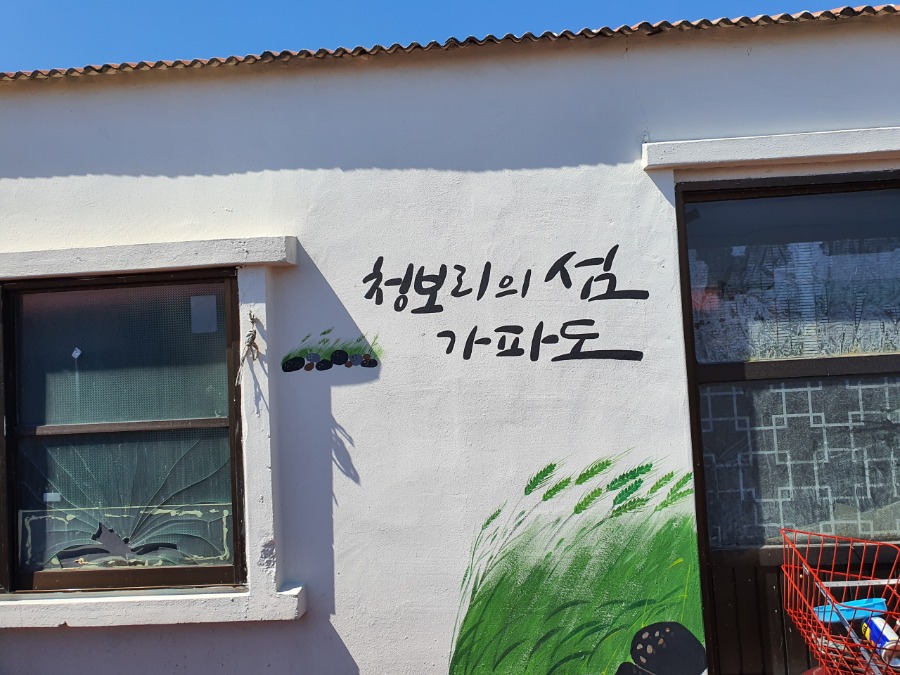 청보리의 섬
가파도